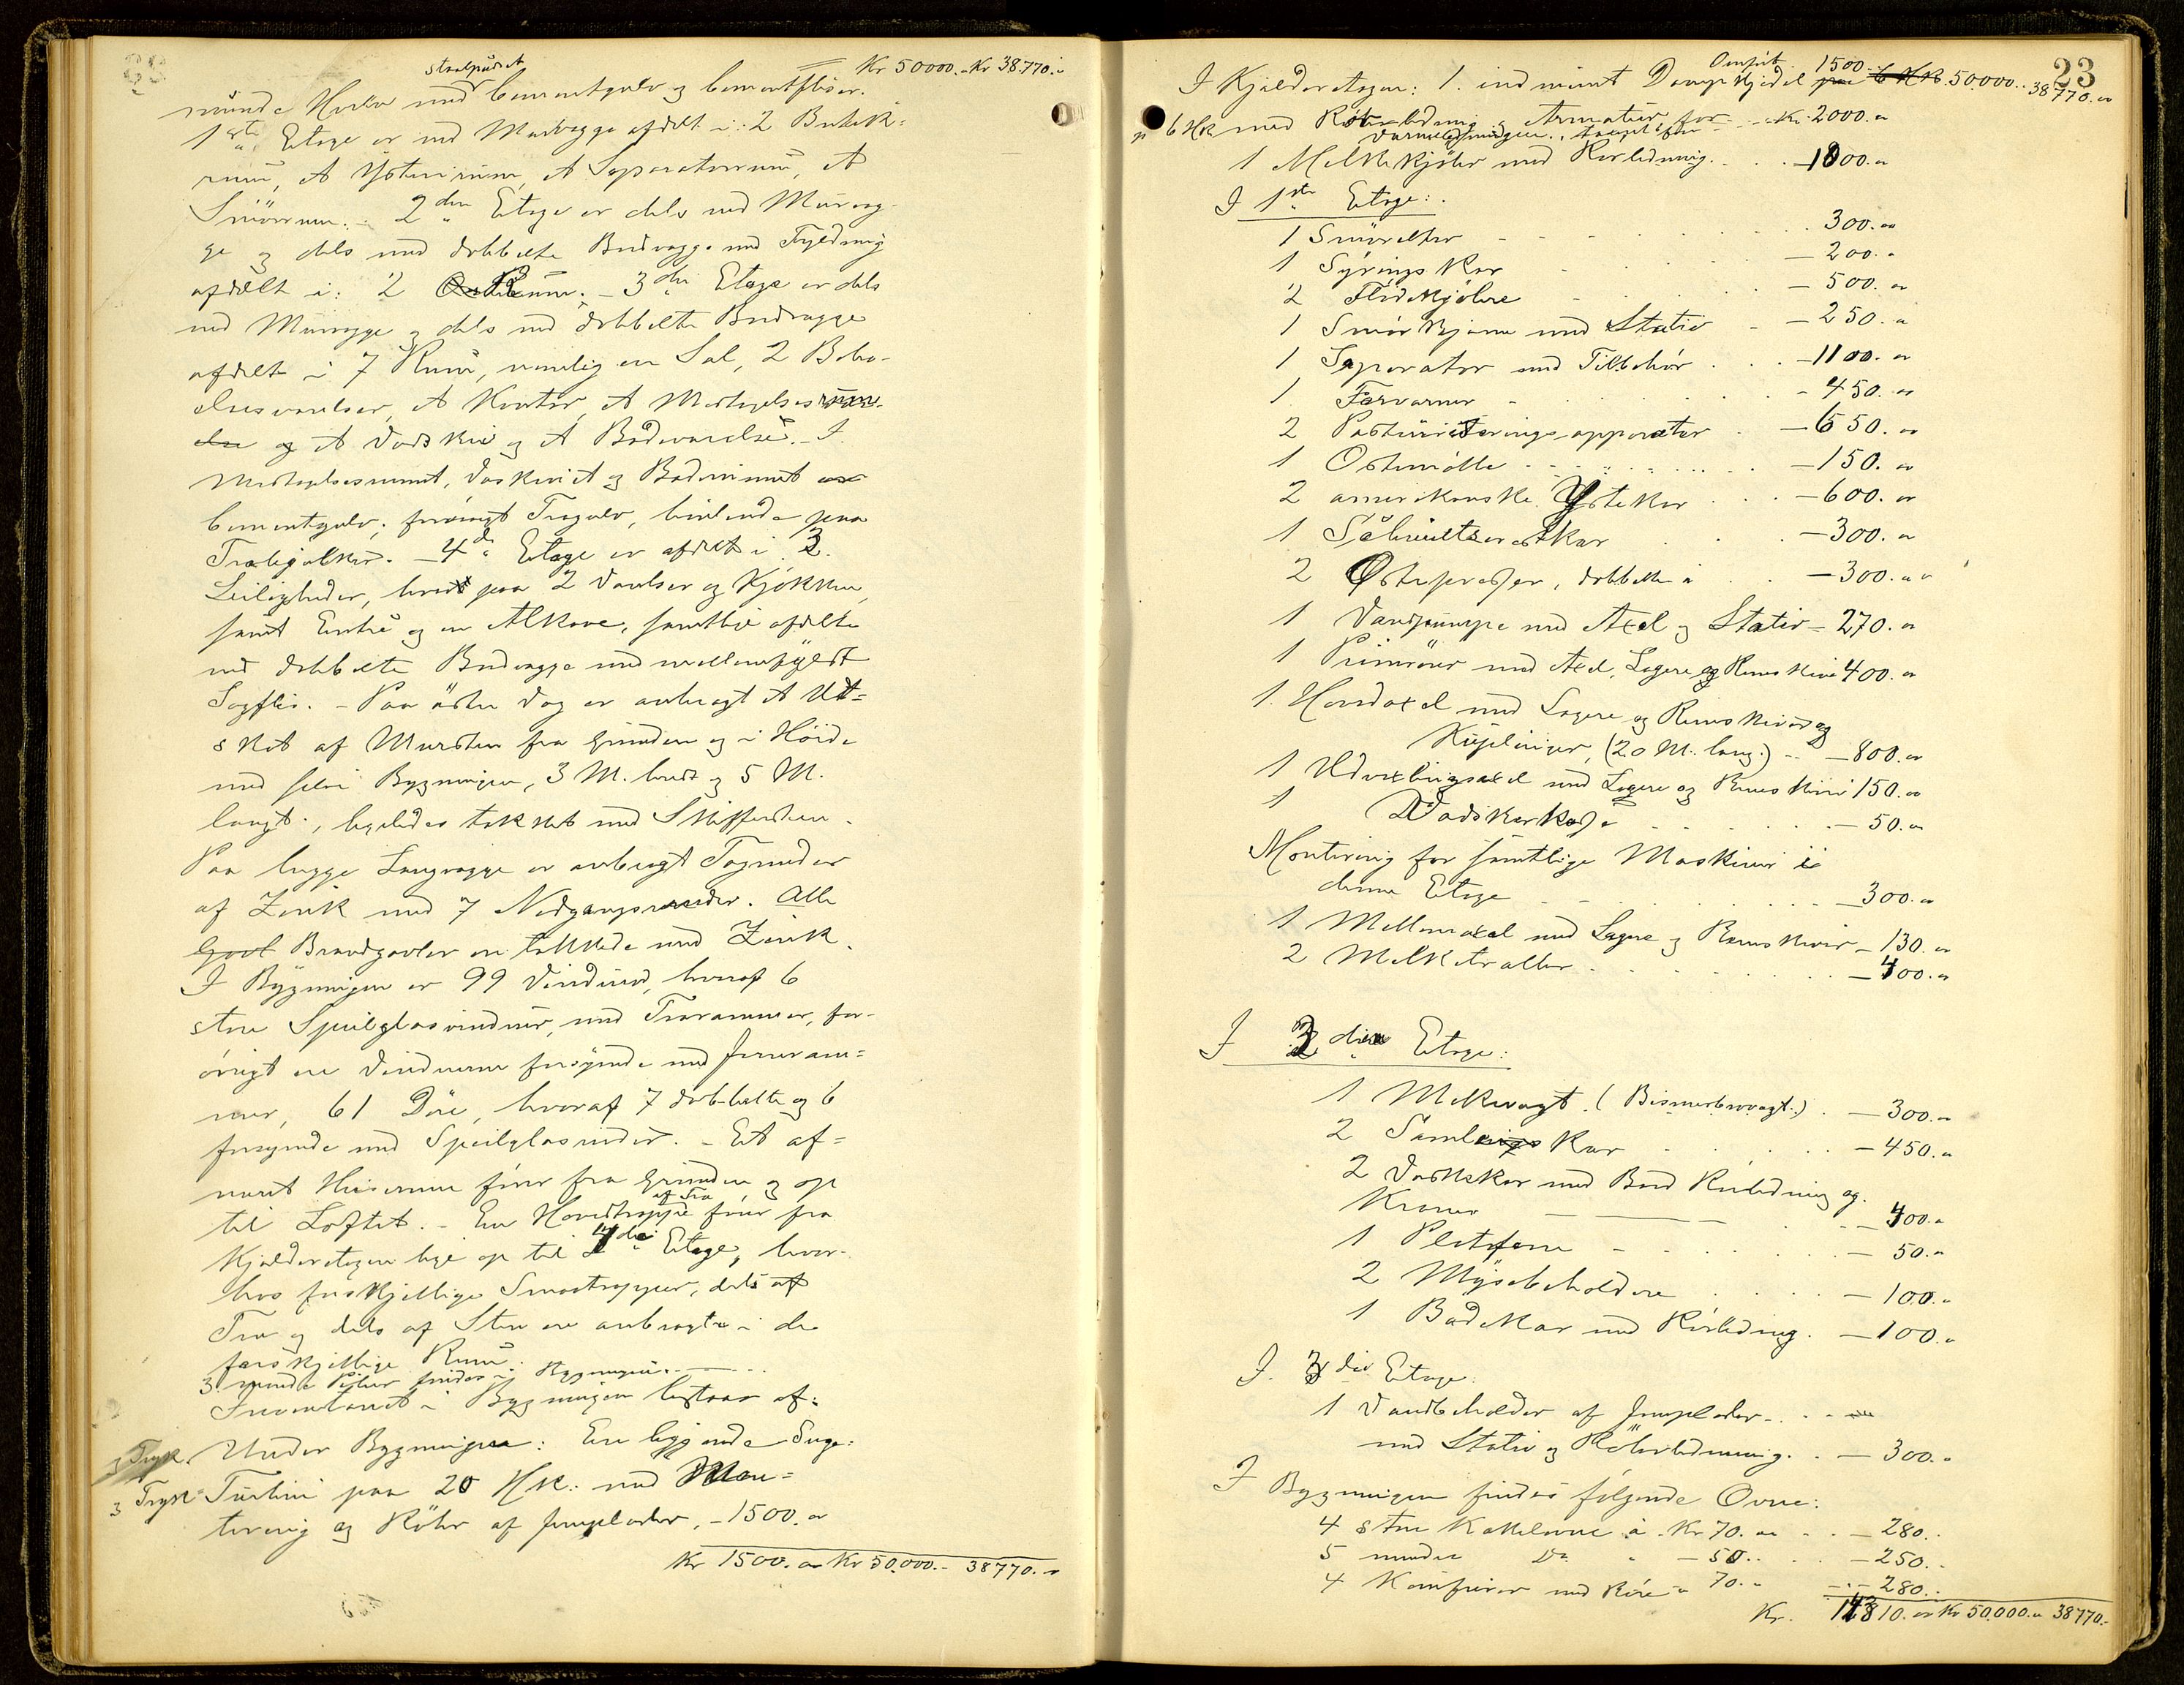 Kr 50000.- Kr 38.770.-
staalpudset
runde med Cementgulv og Cementfliser.
1ste Etage er med Murvægge afdelt i: 2 Butik-
rum, et Ysterirum, et Separatorrum, et
Smörrum. - 2den Etage er dels med Murvæg-
ge og dels med dobbelte Bordvægge med Fyldning
afdelt i: 2 Rum. - 3die Etage er dels
med Murvægge og dels med dobbelte Bordvægge
afdelt i 7 Rum, nemlig en Sal, 2 Bebo-
elsesværelser, et Kontor, et Modtagelsesrum
og et Vadskeri og et Badeværelse. - I
Modtagelsesrummet, Vaskeriet og Baderummet er
Cementgulv; forövrigt Trægulv, hvilende paa
Træbjelker. - 4de Etage er afdelt i 3
Leiligheder, hver paa 2 Værelser og Kjökken,
samt Entre og en Alkove, samtlige afdelte
med dobbelte Bordvægge med mellemfyldt
Sagflis. - Paa östre Væg er anbragt et Ud=
skot af Mursten fra Grunden og i Höide
med selve Bygningen, 3 M. bredt og 5 M.
langt, ligeledes tækket med Skiffersten.
Paa begge Langvægge er anbragt Tagrender
af Zink med 7 Nedgangsrender. Alle
Brandgavler ere tækkede med Zink.
I Bygningen er 99 Vinduer, hvoraf 6
store Speilglasvinduer, med Trærammer, for-
övrigt ere Vinduerne forsynede med Jernram=
mer, 61 Döre, hvoraf 7 dobbelte og 6
forsynede med Speilglasruder. - Et af=
muret Heiserum förer fra Grunden og op
af Træ
til Loftet. - En Hovedtrappe förer fra
Kjælderetagen lige op til 4de Etage, hvor-
hos forskjellige Smaatrapper, dels af
Træ og dels af Sten ere anbragte i de
forskjellige Rum.
3 murede Piber findes i Bygningen.
Inventariet i Bygningen bestaar af:
Under Bygningen: En liggende Suge=
og Tryk=Turbin paa 20 HK: med Mon=
tering og Röhr af Jernplader, - 1500.00
Kr 1500.00 Kr 50.000.- 38770.-
23
Omfört 1500.-
I Kjælderetagen: 1 indmuret Dampkjedel 50.000.- 38770.00
p 6 HK med Rörledning og Armatur for - Kr. 2000.00
1 Melkekjöler med Rörledning - 1800.00
I 1ste Etage:
1 Smörelter 300.00
1 Syrings Kar - 200.-
2 Flödekjölere - 500.00
1 Smörkjerne med Stativ - 250.-
1 Separator med Tilbehör - 1100.00
1 Forvarmer - 450.00
2 Pasteuriseringsapparater - 650.00
1 Ostemölle - 150.00
2 amerikanske Ystekar - 600.00
1 Schweitzerostkar - 300.00
2 Ostepresser, dobbelte - 300.00
1 Vandpumpe med Axel og Stativ - 270.00
1 Primrörer med Axel, Lagere og Remskive 400.00
1 Hovedaxel med Lagere og Remskiver og
Kuplinger, (20 M. lang.) - 800.00
1 Udvexlingsaxel med Lagere og Remskive 150.00
1 - 50.00
Montering for samtlige Maskiner i
denne Etage - 300.00
1 Mellemaxel med Lagere og Remskiver - 130.00
2 Melketraller - 400.00
I 3die Etage:
1 Melkevægt (Bismerbrovægt.) - 300.-
2 Samlekar - 450.00
2 Vaskekar med Bord Rörledning og
Kraner - 400.-
1 Platform - 50.00
2 Mysebeholdere - 100.-
1 Badekar med Rörledning. - 100.-
I. 3die Etage.
1 Vandbeholder af Jernplader
med Stativ og Röhrledning. - 300.-
I Bygningen findes fölgende Ovne:
4 store Kakkelovne à Kr 70.00 - 280.-
5 mindre Do - 50.- - 250.-
4 Komfurer med Röre à 70.- - 280.-
Kr. 14310.00 Kr 50.000.- 38770.-